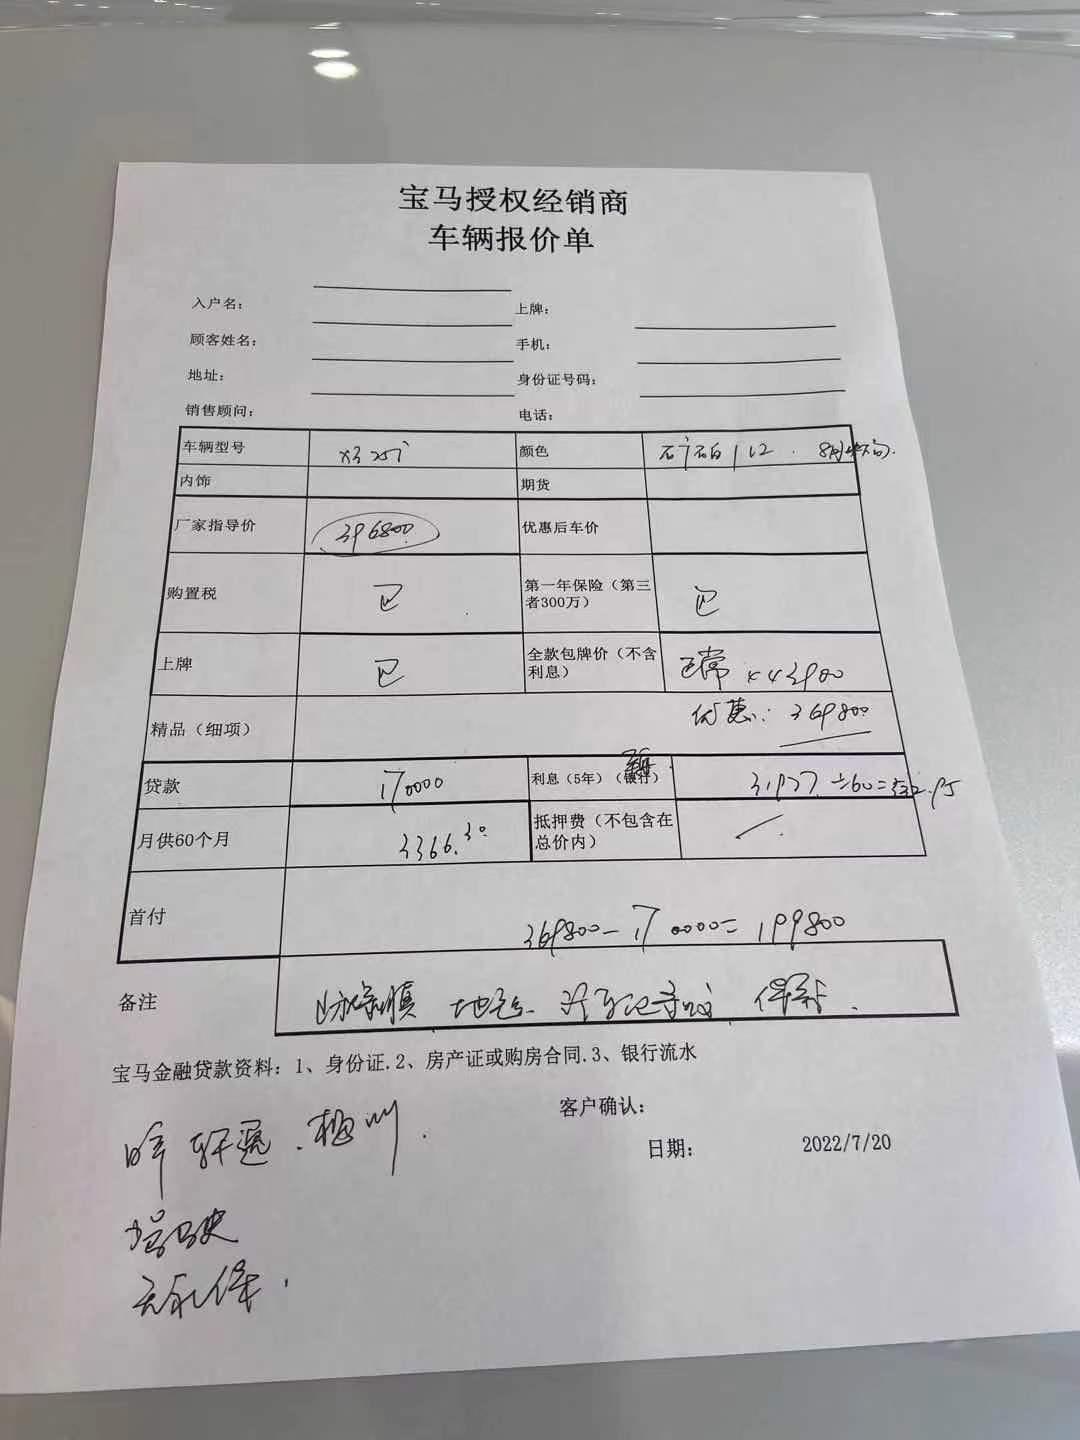 宝马授权经销商
车辆报价单
入户名： 上牌：
顾客姓名： 手机：
地址： 身份证号码：
销售顾问： 电话：
车辆型号 X3 25i 颜色
内饰 期货
厂家指导价 396800 优惠后车价
购置税 已 第一年保险（第三者300万） 已
上牌 已 全款包牌价（不含利息） 正常
精品（细项） 优惠：369800
贷款 170000 利息（5年）（银行） 31977 ÷60=
月供60个月 3366.30 抵押费（不包含在总价内）
首付 369800-170000=199800
备注
宝马金融贷款资料：1、身份证.2、房产证或购房合同.3、银行流水
客户确认：
日期： 2022/7/20